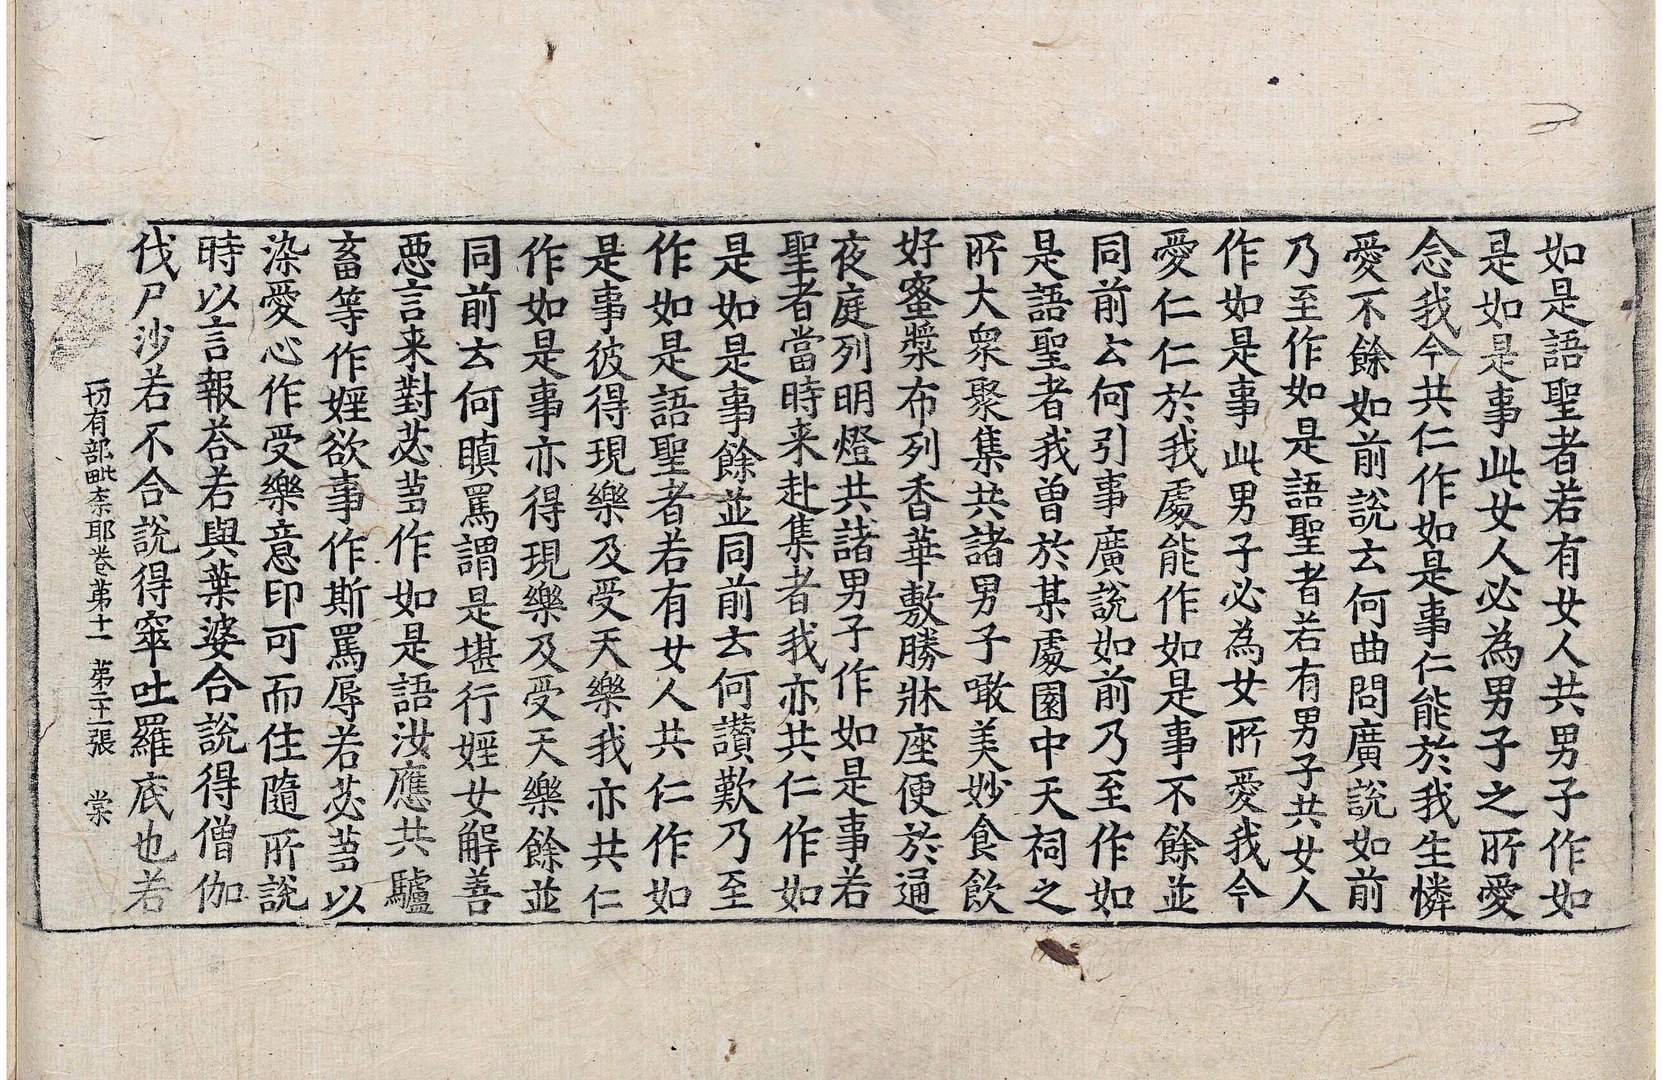 如是語聖者若有女人共男子作如
是如是事此女人必為男子之所愛
念我今共仁作如是事仁能於我生憐
愛不餘如前說云何曲問廣說如前
乃至作如是語聖者若有男子共女人
作如是事此男子必為女所愛我今
愛仁仁於我處能作如是事不餘並
同前云何引事廣說如前乃至作如
是語聖者我曾於某處園中天祠之
所大衆聚集共諸男子噉美妙食飲
好蜜漿布列香華敷勝牀座便於通
夜庭列明燈共諸男子作如是事若
聖者當時来赴集者我亦共仁作如
是如是事餘並同前云何讚歎乃至
作如是語聖者若有女人共仁作如
是事彼得現樂及受天樂我亦共仁
作如是事亦得現樂及受天樂餘並
同前云何瞋罵謂是堪行婬女解善
惡言来對苾蒭作如是語汝應共驢
畜等作婬欲事作斯罵辱若苾蒭以
染愛心作受樂意印可而住隨所說
時以言報荅若與葉婆合說得僧伽
伐尸沙若不合說得窣吐羅底也若
一切有部毗奈耶卷第十一 第二十二張 棠